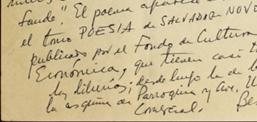 fando". El poema aparece
el tomo POESIA de SALVADOR NOVO
publicado por el Fondo de Cultura
Económica, que tienen casi
las librerias, desde luego la de
la esquina de Parroquia y Ave. U
Coyoacal.
Be